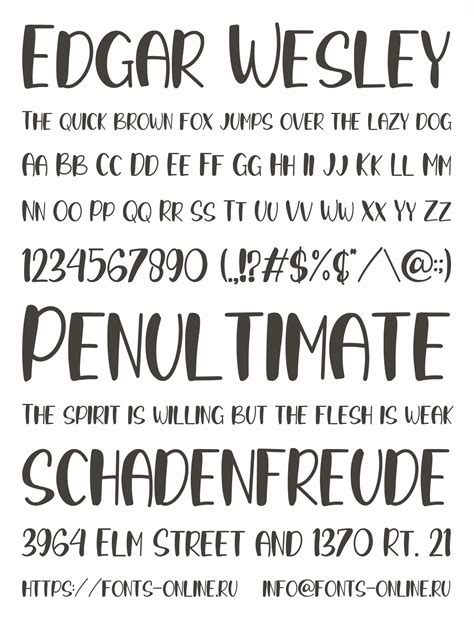 EDGAR WESLEY
THE QUICK BROWN FOX JUMPS OVER THE LAZY DOG
AA BB CC DD EE FF GG HH II JJ KK LL MM
NN OO PP QQ RR SS TT UU VV WW XX YY ZZ
1234567890 (.,!?#$%¢*/\@:;)
PENULTIMATE
THE SPIRIT IS WILLING BUT THE FLESH IS WEAK
SCHADENFREUDE
3964 ELM STREET AND 1370 RT. 21
HTTPS://FONTS-ONLINE.RU INFO@FONTS-ONLINE.RU